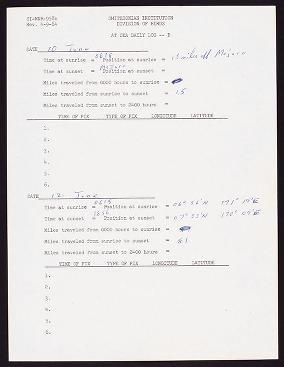 SI-MNH-959c
Rev. 6-9-64
SMITHSONIAN INSTITUTION
DIVISION OF BIRDS
AT SEA DAILY LOG -- B
DATE 10 June
Time at sunrise = 0615 Position at sunrise = 15 miles off Majuro
Time at sunset = Majuro Position at sunset =
Miles traveled from 0000 hours to sunrise =
Miles traveled from sunrise to sunset = 15
Miles traveled from sunset to 2400 hours =
TIME OF FIX TYPE OF FIX LONGITUDE LATITUDE
1.
2.
3.
4.
5.
6.
DATE 12 June
Time at sunrise = 0615 Position at sunrise = 06° 56'N 171° 19'E
Time at sunset = 1856 Position at sunset = 07° 53'N 170° 09'E
Miles traveled from 0000 hours to sunrise =
Miles traveled from sunrise to sunset = 81
Miles traveled from sunset to 2400 hours =
TIME OF FIX TYPE OF FIX LONGITUDE LATITUDE
1.
2.
3.
4.
5.
6.